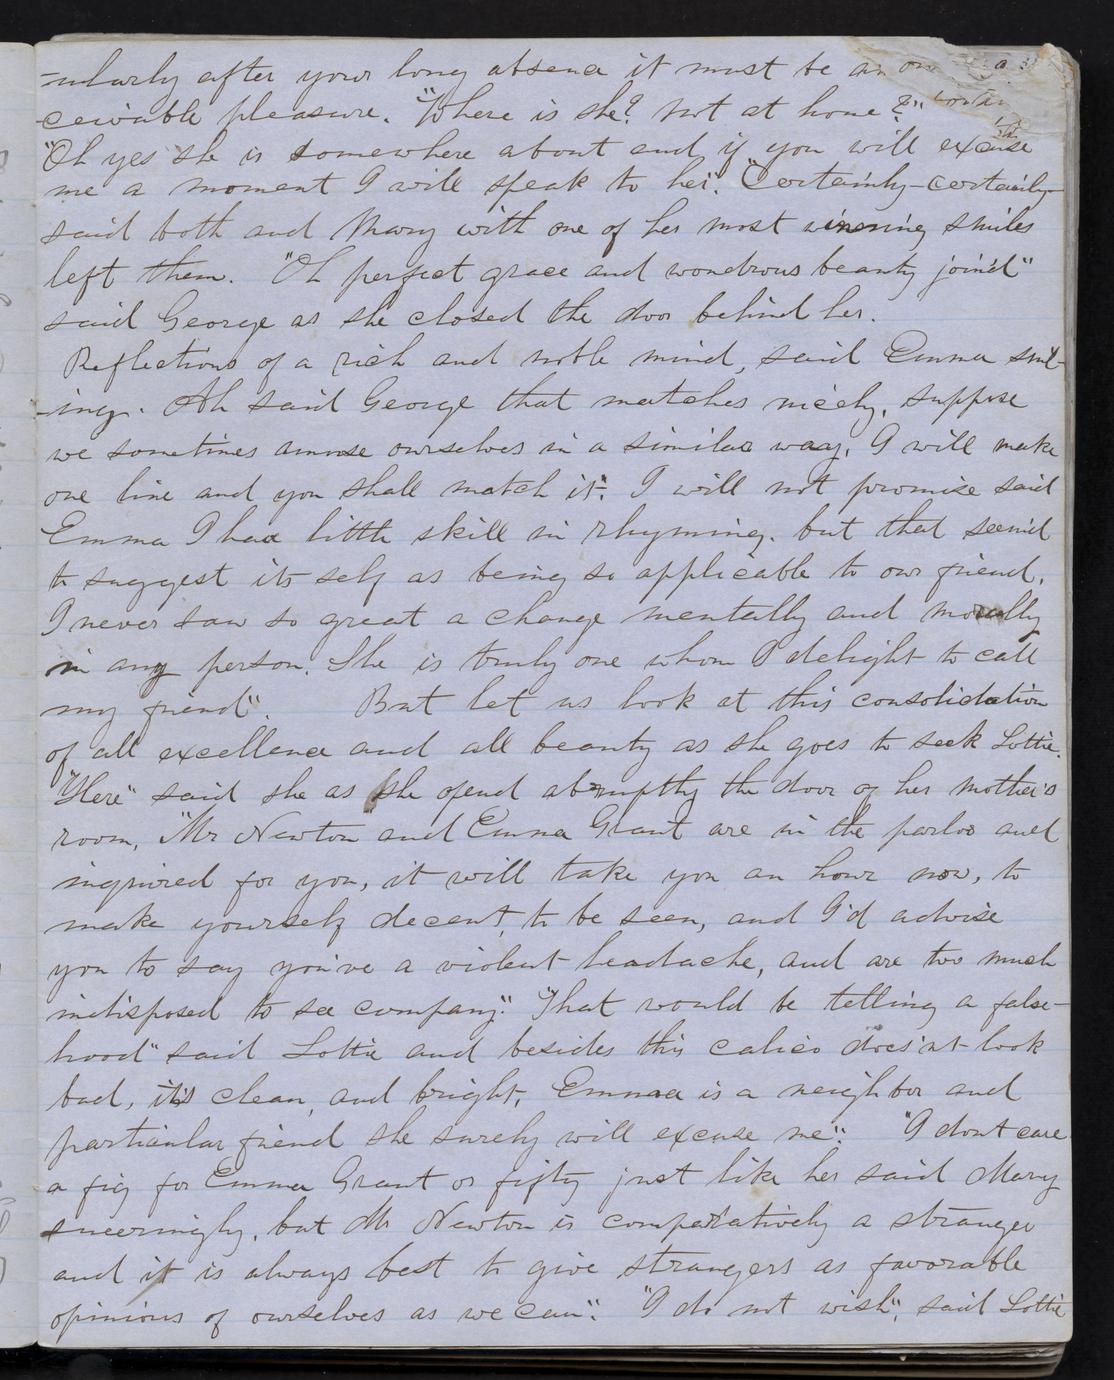 =ularly after your long absence it must be an
ceivable pleasure. "Where is she? not at home?"
"Oh yes she is somewhere about and if you will excuse
me a moment I will speak to her". "Certainly-certainly-
said both and Mary with one of her most winning smiles
left them. "Oh perfect grace and wondrous beauty join'd"
said George as she closed the door behind her.
Reflections of a rich and noble mind, said Emma smil-
-ing. Ah said George that matches nicely, suppose
we sometimes amuse ourselves in a similar way, I will make
one line and you shall match it". I will not promise said
Emma I have little skill in rhyming. but that seem'd
to suggest its self as being so applicable to our friend.
I never saw so great a change mentally and morally
in any person. She is truly one whom I delight to call
my friend". But let us look at this consolidation
of all excellence and all beauty as she goes to seek Lottie.
"Here" said she as she opend abruptly the door of her mother's
room, "Mr Newton and Emma Grant are in the parlor and
inquired for you, it will take you an hour now, to
make yourself decent, to be seen, and I'd advise
you to say you've a violent headache, and are too much
indisposed to see company". "That would be telling a false-
hood" said Lottie and besides this calico does'nt look
bad, it's clean, and bright, Emma is a neighbor and
particular friend she surely will excuse me". "I dont care
a fig for Emma Grant or fifty just like her said Mary
sneeringly, but Mr Newton is comparatively a stranger
and it is always best to give strangers as favorable
opinions of ourselves as we can". "I do not wish", said Lottie